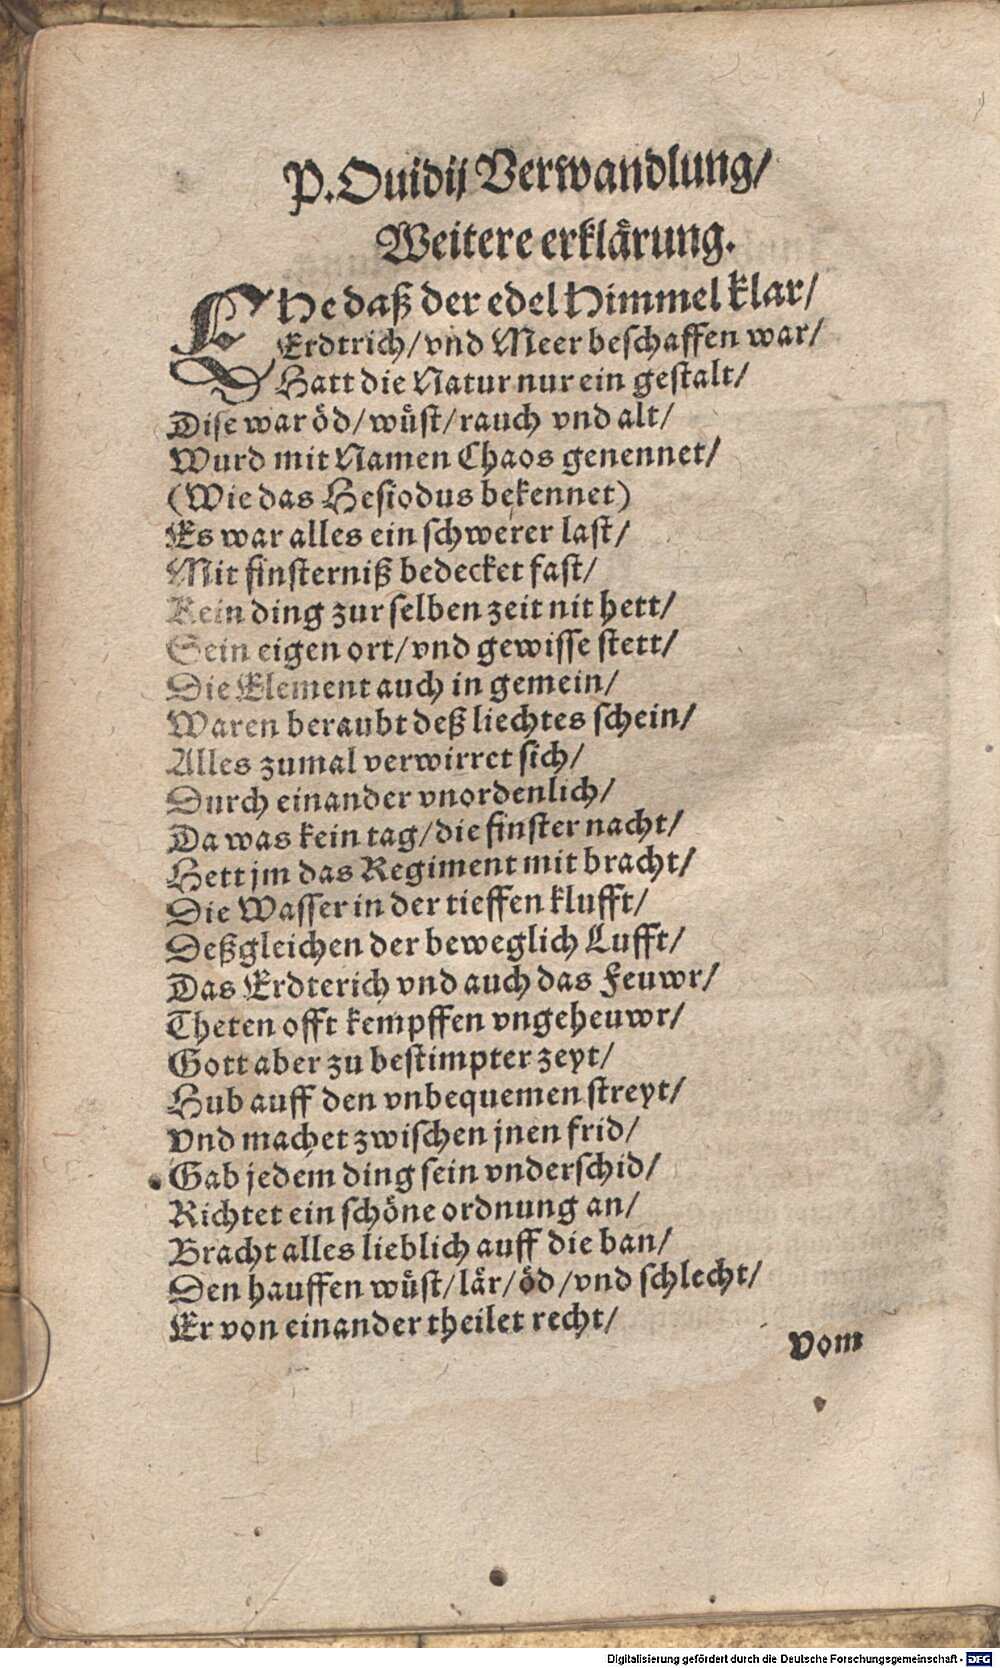 P. Ouidij Verwandlung/
Weitere erklärung.
EHe daß der edel Himmel klar/
Erdtrich/ vnd Meer beschaffen war/
Hatt die Natur nur ein gestalt/
Dise war öd/ wüst/ rauch vnd alt/
Wurd mit Namen Chaos genennet/
(Wie das Hesiodus bekennet)
Es war alles ein schwerer last/
Mit finsterniß bedecket fast/
Kein ding zur selben zeit nit hett/
Sein eigen ort/ vnd gewisse stett/
Die Element auch in gemein/
Waren beraubt deß liechtes schein/
Alles zumal verwirret sich/
Durch einander vnordenlich/
Da was kein tag/ die finster nacht/
Hett jm das Regiment mit bracht/
Die Wasser in der tieffen klufft/
Deßgleichen der beweglich Lufft/
Das Erdterich vnd auch das Feuwr/
Theten offt kempffen vngeheuwr/
Gott aber zu bestimpter zeyt/
Hub auff den vnbequemen streyt/
Vnd machet zwischen jnen frid/
Gab jedem ding sein vnderschid/
Richtet ein schöne ordnung an/
Bracht alles lieblich auff die ban/
Den hauffen wüst/ lär/ öd/ vnd schlecht/
Er von einander theilet recht/
Vom
Digitalisierung gefördert durch die Deutsche Forschungsgemeinschaft - DFG